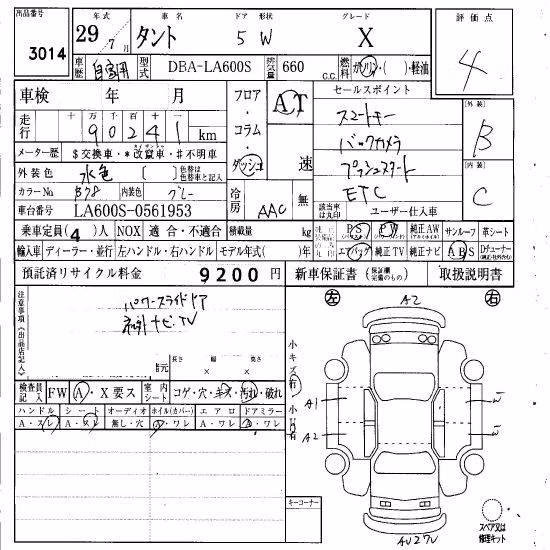 出品番号 3014
年式 29 年 7 月
車名 タント
ドア 形状 5 W
グレード X
評価点 4
車歴 自家用
型式 DBA-LA600S
排気量 660 c.c.
燃料 ガソリン・( )・軽油
車検 年 月
フロア・コラム・ダッシュ
AT 速
セールスポイント
スマートキー
バックカメラ
プッシュスタート
ETC
外装 B
内装 C
走行 十 万 千 百 十 一
90241 km
メーター歴 $交換車・*改竄車・#不明車
外装色 水色 ( ) 色替は色替車と記入
カラーNo B78 内装色 グレー
冷房 AAC 無
該当車は丸印 ユーザー仕入車
車台番号 LA600S-0561953
乗車定員(4)人 NOX 適合・不適合 積載量 kg
PS PW 純正AW サンルーフ 革シート
輸入車 ディーラー・並行 左ハンドル・右ハンドル モデル年式( )年
エアバッグ 純正TV 純正ナビ ABS Dチューナー
預託済リサイクル料金 9200 円
新車保証書 (保証欄完備のもの) 取扱説明書
注意事項(出品店記入)
パワースライドドア
社外ナビTV
長さ 幅 高さ
× ×
左 右
A2
小キズ有 小凹有
A1
A2
W
W
検査員記入 FW A・X要ス 室内シート コゲ・穴・キズ・汚れ・破れ
ハンドル シート オーディオ ホイル(カバー) エアロ ドアミラー
A・スレ A・スレ 無し・穴 A・ワレ A・ワレ A・ワレ
キーコーナー
AU2 7V
スペア又は修理キット